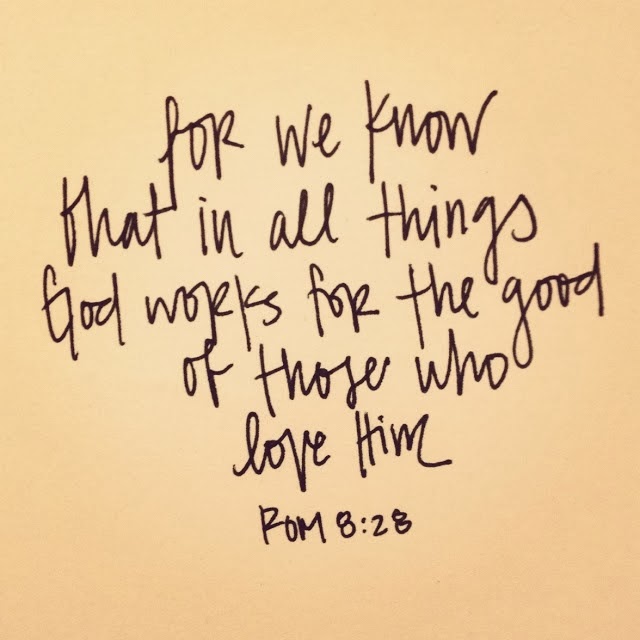 for we know
that in all things
God works for the good
of those who
love Him
ROM 8:28